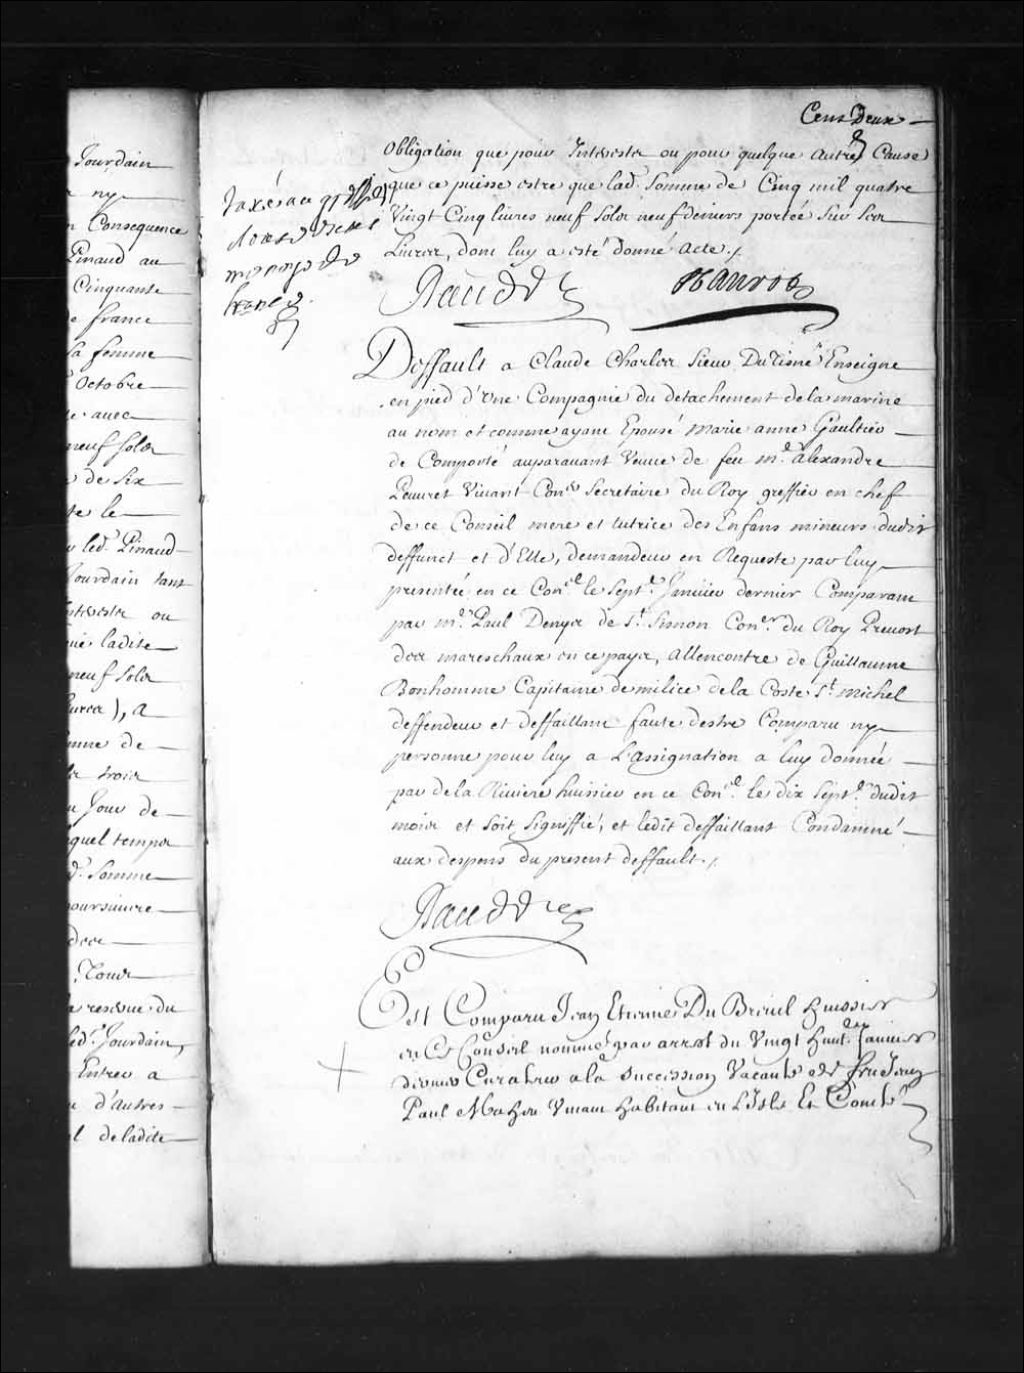 Jourdain
ny
Consequence
Pinaud au
Cinquante
france
sa femme
Octobre
avec
neuf solz
de six
le
led. Pinaud
Jourdain tant
Interestz ou
ladite
neuf solz
), a
de
trois
Jour de
quel temps
Somme
poursuivre
Tour
reserve du
led. Jourdain,
Entrer a
d'autres
de ladite
Cent Deux
Obligation que pour Interestz ou pour quelque autre Cause
que ce puisse estre que lad. Somme de Cinq mil quatre
Vingt Cinq livres neuf Solz neuf deniers portée Sur Ses
Livres, dont luy a esté donné acte./
taxé au greffier
monoye de
france
Deffault a Claude Charles Sieur Du Tisné Enseigne
en pied d'Une Compagnie du detachement de la marine
au nom et comme ayant Epousé Marie anne Gaultier
de Comporté auparavant Veuve de feu me. alexandre
Peuvret Vivant Coner Secretaire du Roy greffier en chef
de ce Conseil mere et tutrice des Enfans mineurs dudit
deffunct et d'Elle, demandeur en Requeste par luy
presentée en ce Conel. le Sept.e Janvier dernier Comparant
par me. Paul Denys de St. Simon Coner. du Roy Prevost
des mareschaux en ce pays, allencontre de Guillaume
Bonhomme Capitaine de milice de la Coste St. michel
deffendeur et deffaillant faute destre Comparu ny
personne pour luy a L'assignation a luy donnée
par de la Riviere huissier en ce Conel. le dix Septe. dudit
mois et soit Signiffié, et ledit deffaillant Condamné
aux despens du present deffault./
Est Comparu Jean Etienne Du Breuil huissier
en Ce Conseil nommé par arrest du Vingt huite. Janvier
dernier Curateur a la Succession Vacante de feu Jean
Paul Maheu Vivant habitant en L'Isle Et Comté